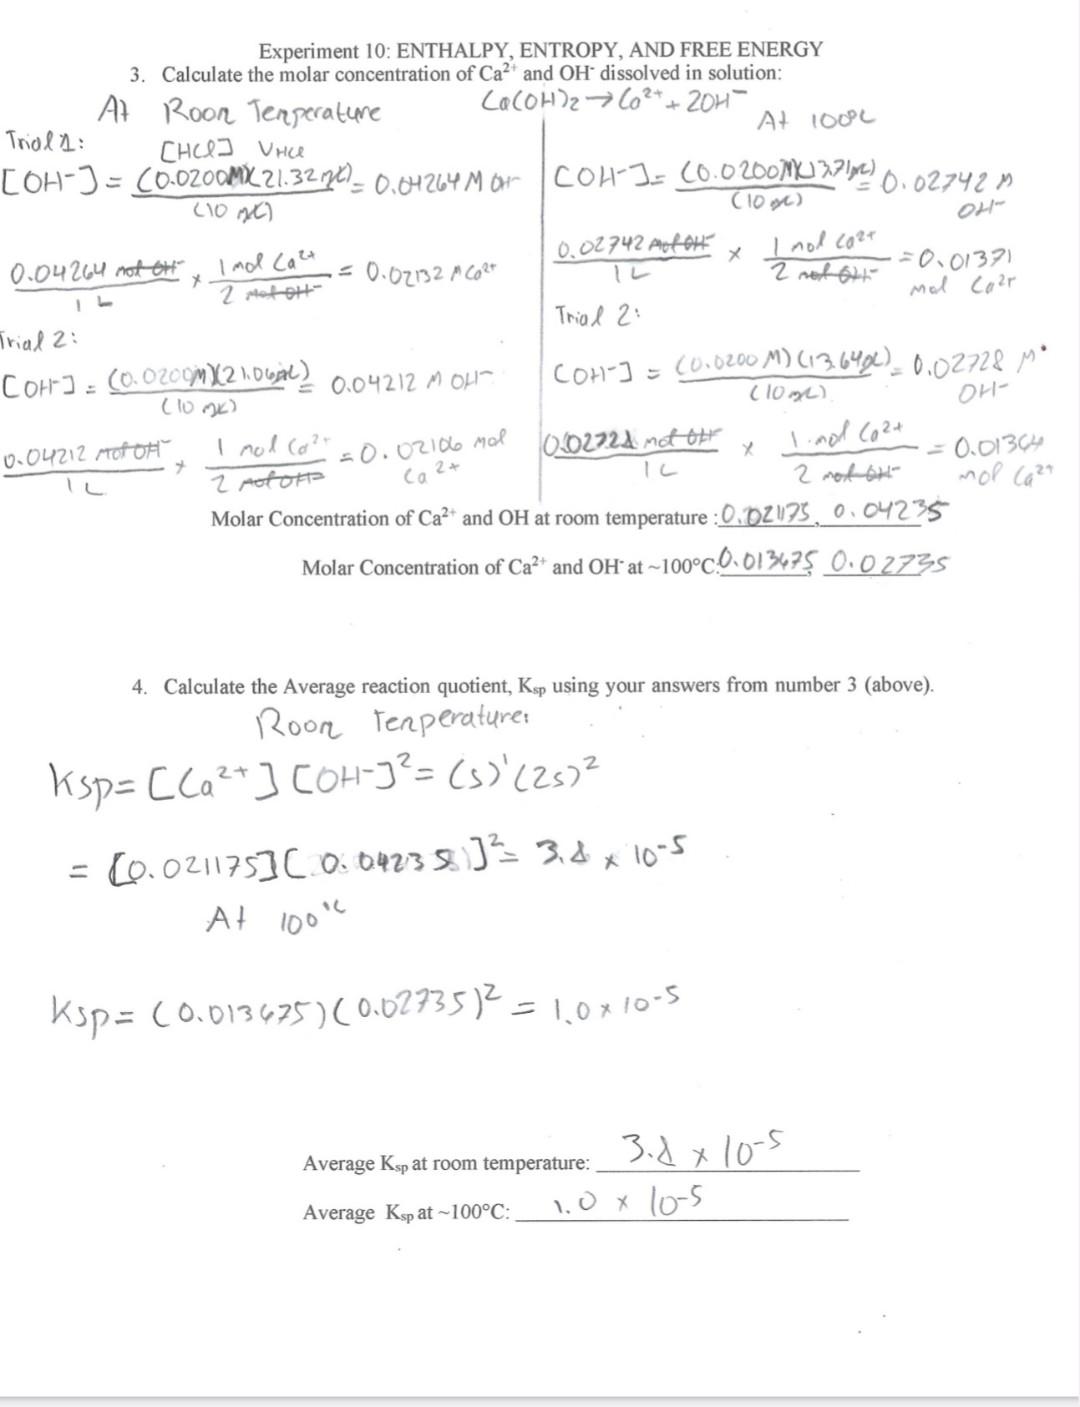 Experiment 10: ENTHALPY, ENTROPY, AND FREE ENERGY
3. Calculate the molar concentration of Ca²⁺ and OH⁻ dissolved in solution:
At Room Temperature
Ca(OH)2 → Ca²⁺ + 2OH⁻
Trial 1:
[HCl] VHCl
[OH-] = (0.0200M)(21.32 mL) = 0.04264 M OH-
(10 mL)
0.04264 mol OH- × 1 mol Ca²⁺ = 0.02132 M Ca²⁺
1 L 2 mol OH-
Trial 2:
[OH-] = (0.0200M)(21.06mL) = 0.04212 M OH-
(10 mL)
0.04212 mol OH- × 1 mol Ca²⁺ = 0.02106 mol Ca²⁺
1 L 2 mol OH-
At 100°C
[OH-] = (0.0200M)(13.71mL) = 0.02742 M OH-
(10 mL)
0.02742 mol OH- × 1 mol Ca²⁺ = 0.01371 mol Ca²⁺
1 L 2 mol OH-
Trial 2:
[OH-] = (0.0200 M)(13.64mL) = 0.02728 M OH-
(10 mL)
0.02728 mol OH- × 1 mol Ca²⁺ = 0.01364 mol Ca²⁺
1 L 2 mol OH-
Molar Concentration of Ca²⁺ and OH at room temperature : 0.021175, 0.04235
Molar Concentration of Ca²⁺ and OH⁻ at ~100°C: 0.013675, 0.02735
4. Calculate the Average reaction quotient, Ksp using your answers from number 3 (above).
Room Temperature:
Ksp = [Ca²⁺] [OH-]² = (s)¹(2s)²
= [0.021175][0.04235]² = 3.8 × 10-5
At 100°C
Ksp = (0.013675)(0.02735)² = 1.0 × 10-5
Average Ksp at room temperature: 3.8 × 10-5
Average Ksp at ~100°C: 1.0 × 10-5